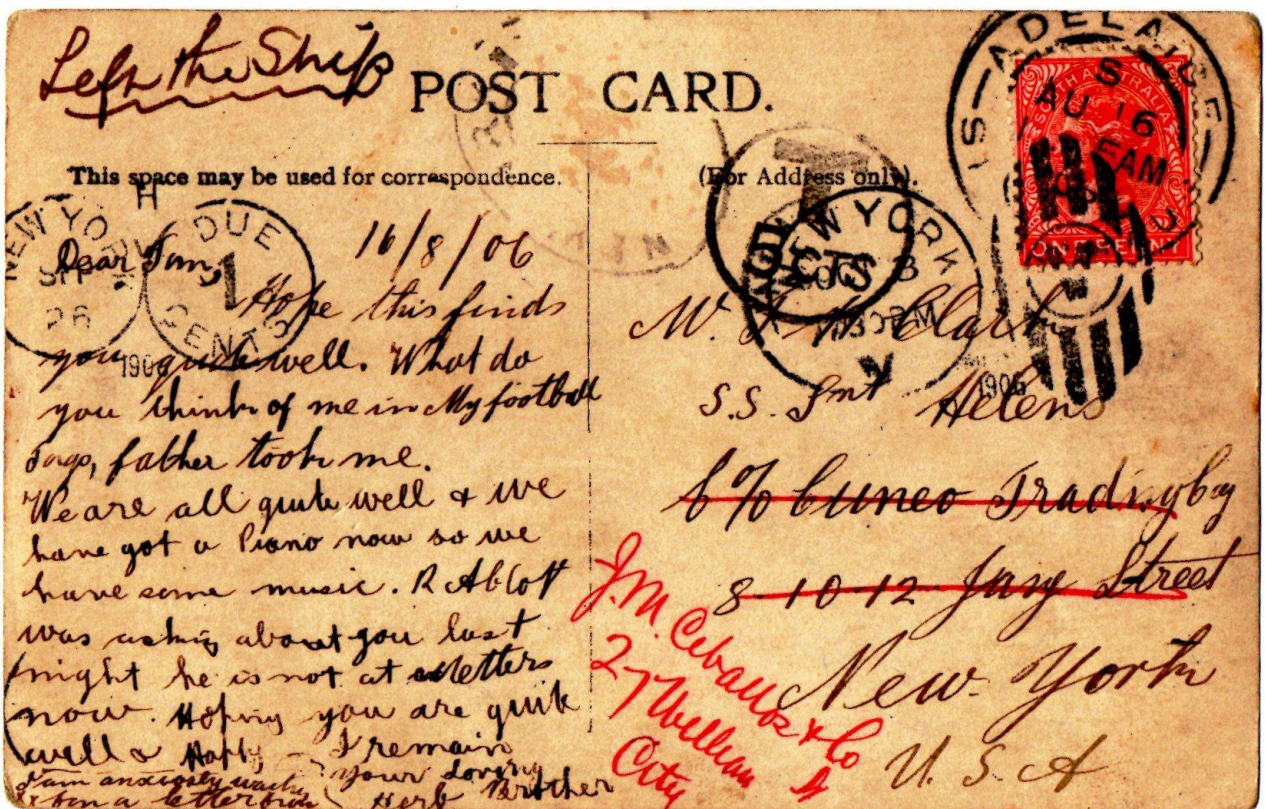 Left the Ship
POST CARD.
This space may be used for correspondence.
(For Address only).
ADELAIDE
S
AU 16
AM
SOUTH AUSTRALIA
ONE PENNY
T
CTS
NEW YORK
30 PM
1906
NEW YORK
SEP
26
1906
H
DUE
1
CENTS
16/8/06
Dear Tom,
Hope this finds
you quite well. What do
you think of me in My football
togs, father took me.
We are all quite well & we
have got a Piano now so we
have some music. R Abbott
was asking about you last
night he is not at Metters
now. Hoping you are quite
well & Happy - I remain
Your Loving
Herb Brother
I am anxiously waiting
for a letter from
Mr. Clark
S.S. Smt Helens
c/o Cuneo Trading Coy
8-10-12 Jay Street
New York
U.S.A
J.M. Ceballos & Co
27 William St
City